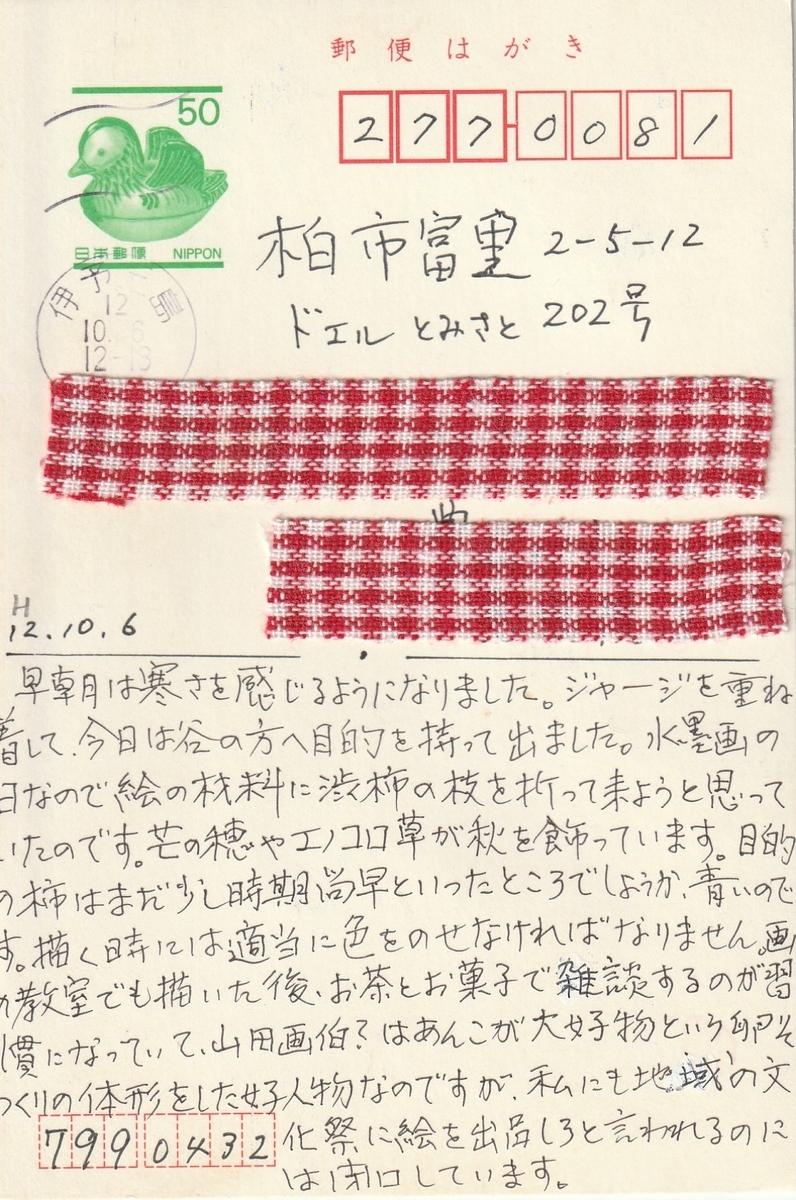 郵便はがき
50
日本郵便 NIPPON
277-0081
伊予三島
12
10.6
12-18
柏市富里 2-5-12
ドエルとみさと 202号
H
12.10.6
早朝は寒さを感じるようになりました。ジャージを重ね
着して、今日は谷の方へ目的を持って出ました。水墨画の
日なので絵の材料に渋柿の枝を折って来ようと思って
いたのです。芒の穂やエノコロ草が秋を飾っています。目的
の柿はまだ少し時期尚早といったところでしょうか、青いので
す。描く時には適当に色をのせなければなりません。画
の教室でも描いた後、お茶とお菓子で雑談するのが習
慣になっていて、山田画伯?はあんこが大好物という卵そ
っくりの体形をした好人物なのですが、私にも地域の文
化祭に絵を出品しろと言われるのに
は閉口しています。
7990432